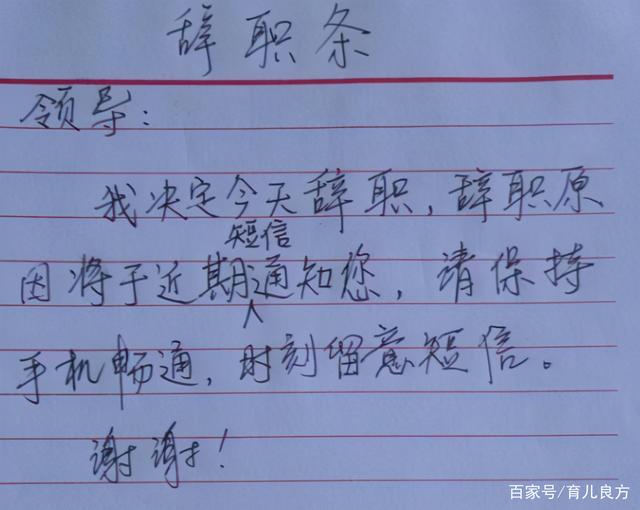 辞职条
领导：
我决定今天辞职，辞职原
因将于近期短信通知您，请保持
手机畅通，时刻留意短信。
谢谢！
百家号/育儿良方